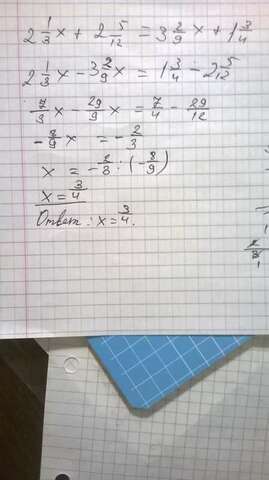 2 1/3 x + 2 5/12 = 3 2/9 x + 1 3/4
2 1/3 x - 3 2/9 x = 1 3/4 - 2 5/12
7/3 x - 29/9 x = 7/4 - 29/12
- 8/9 x = - 2/3
x = - 2/3 : (- 8/9)
x = 3/4
Ответ: x = 3/4.